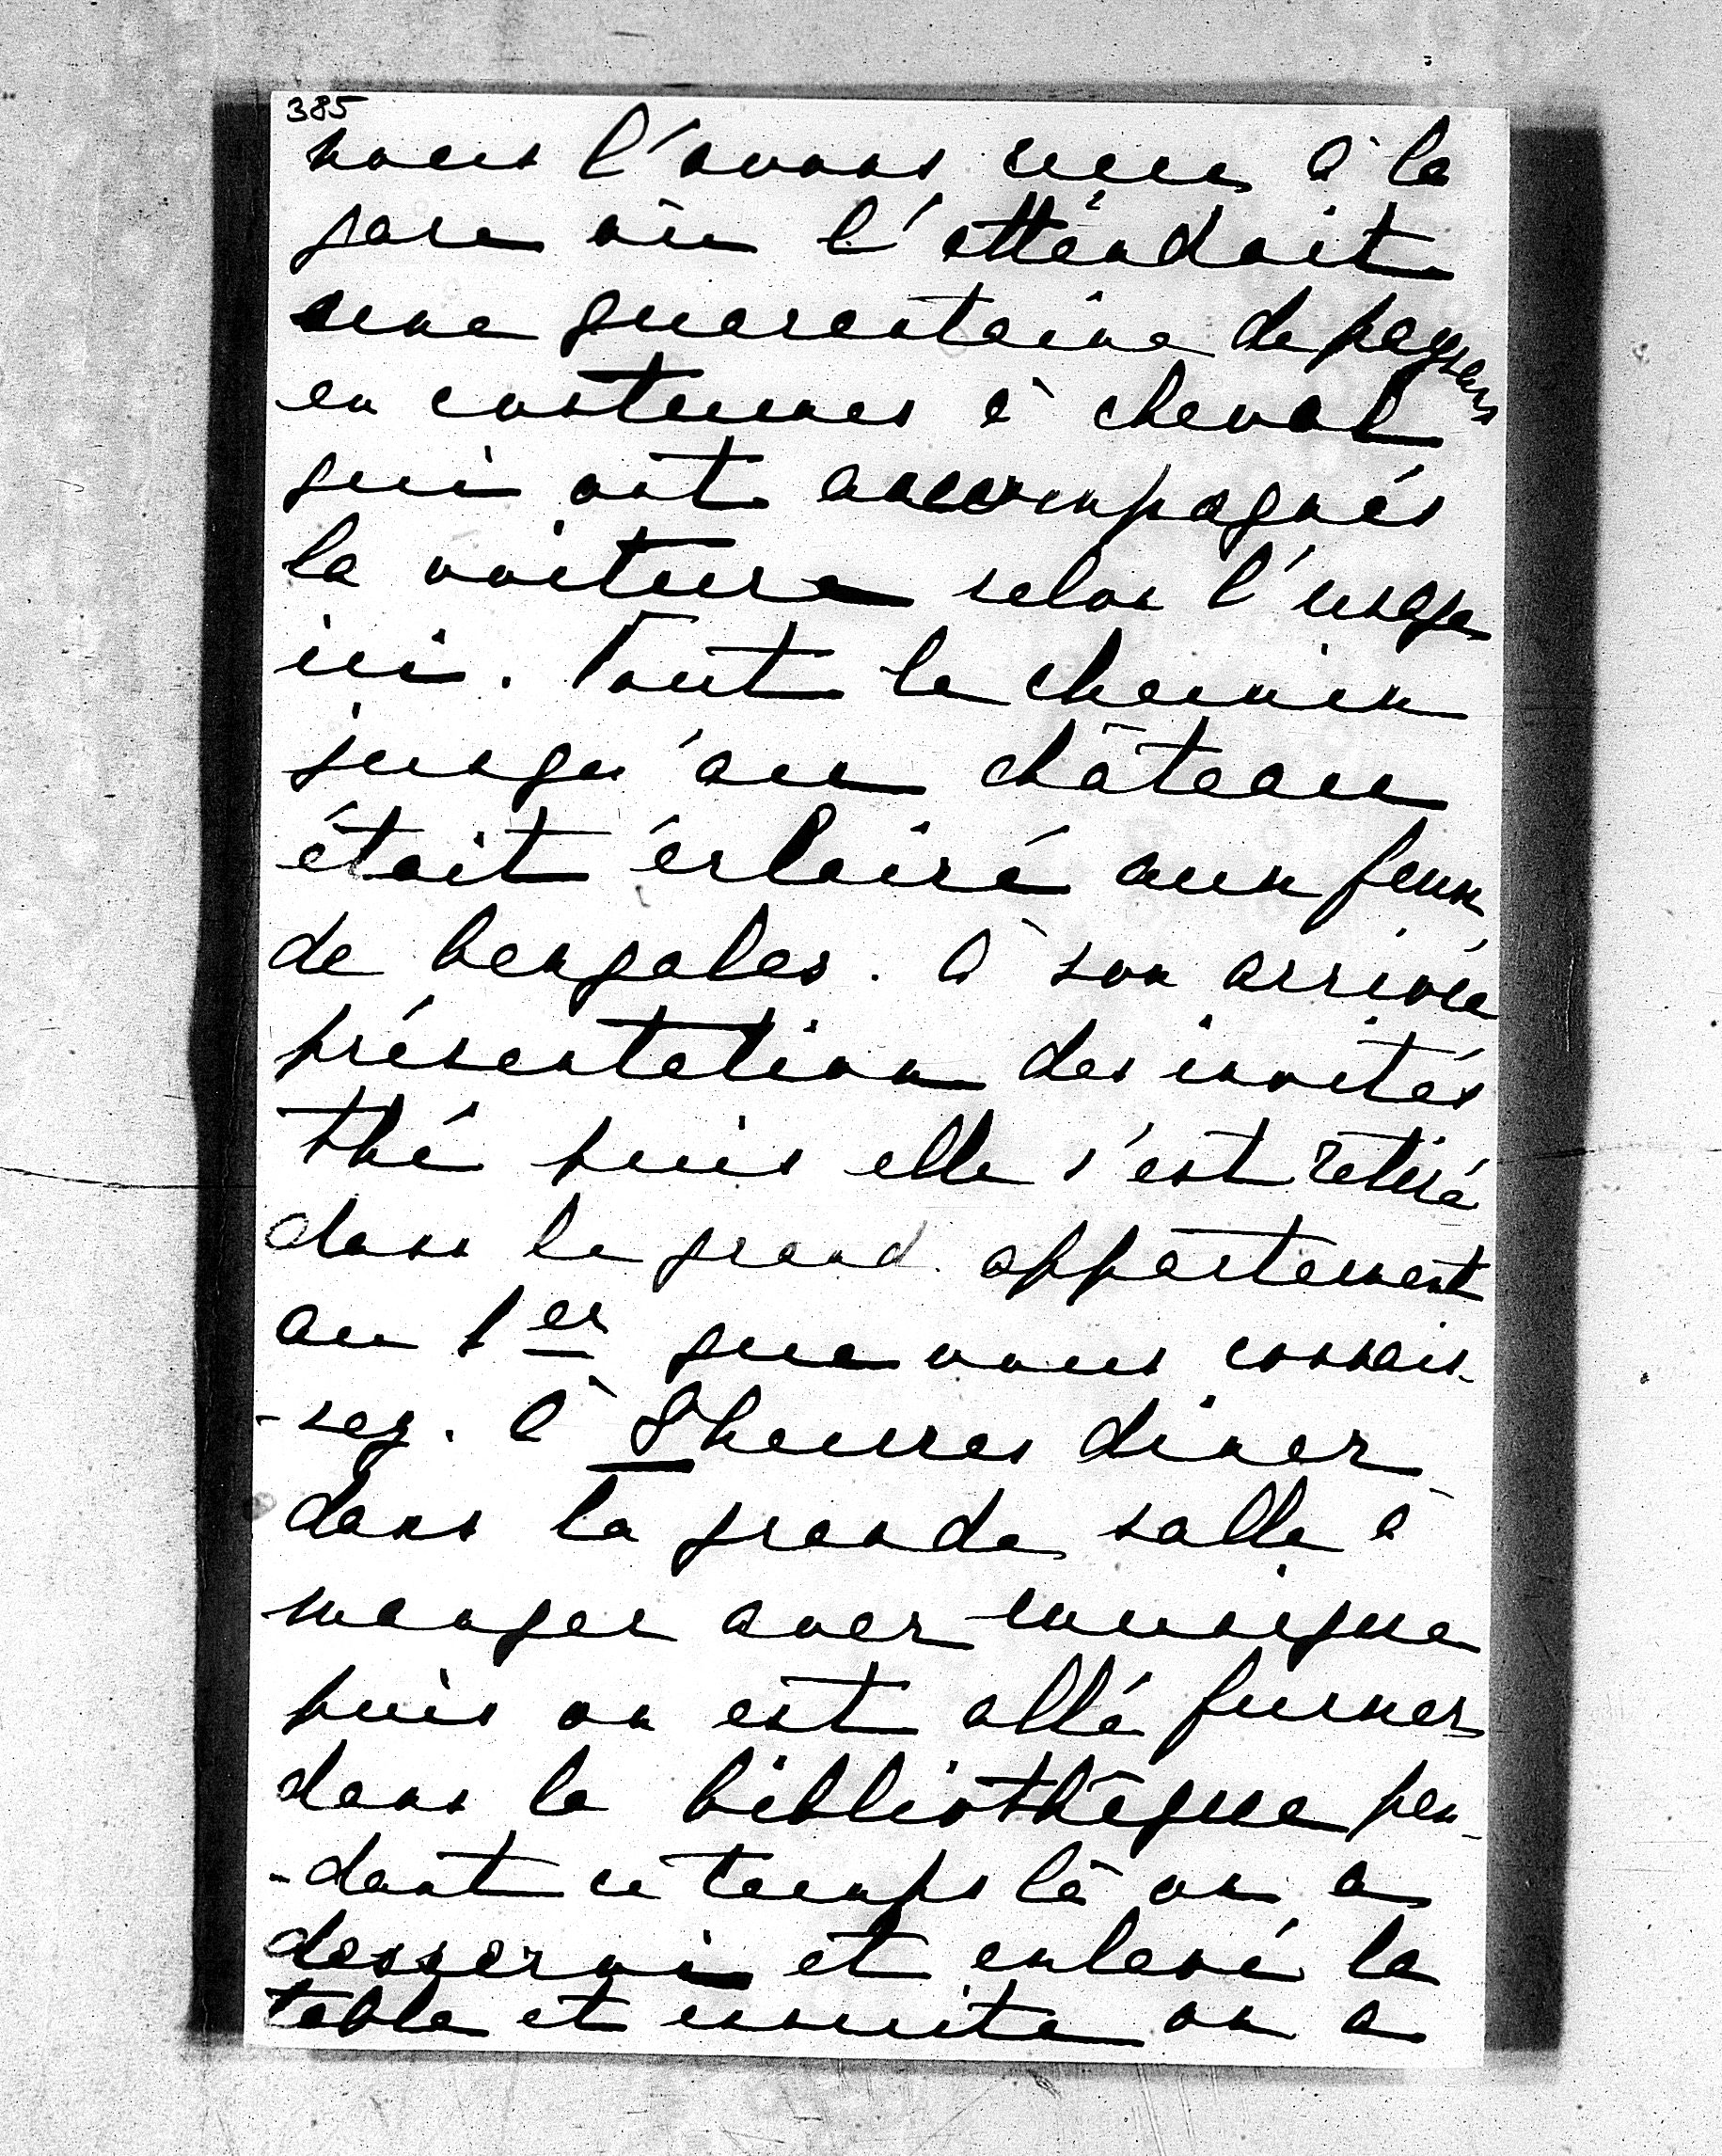 385
nous l'avons vue à la
gare où l'attendait
une quarantaine de paysans
en costumes à cheval
qui ont accompagnés
la voiture selon l'usage
ici. Tout le chemin
jusqu'au château
était éclairé aux feux
de bengales. à son arrivée
présentation des invités
thé puis elle s'est retiré
dans le grand appartement
au 1er que vous connais-
-sez. à 8 heures diner
dans la grande salle à
manger avec musique
puis on est allé fumer
dans la bibliothèque pen-
-dant ce temps là on a
desservi et enlevé la
table et ensuite on a